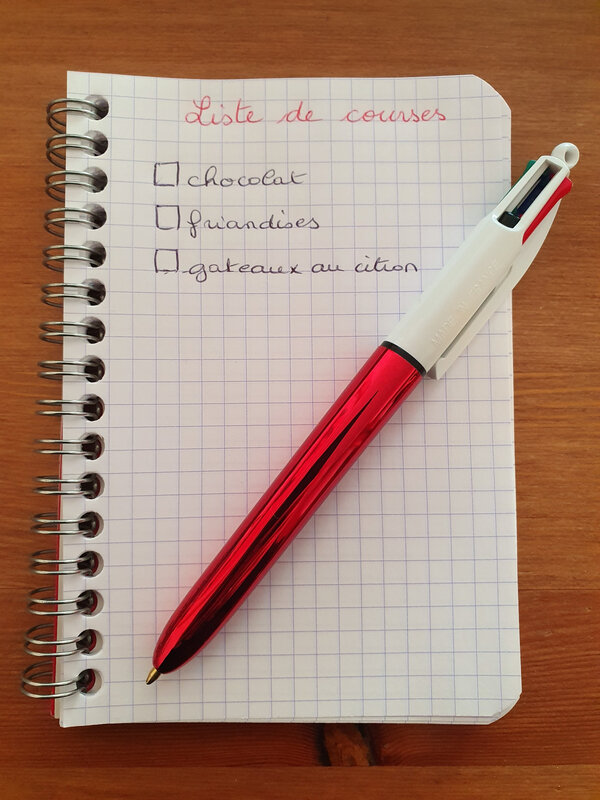 Liste de courses
chocolat
friandises
gateaux au citron
MADE IN FRANCE